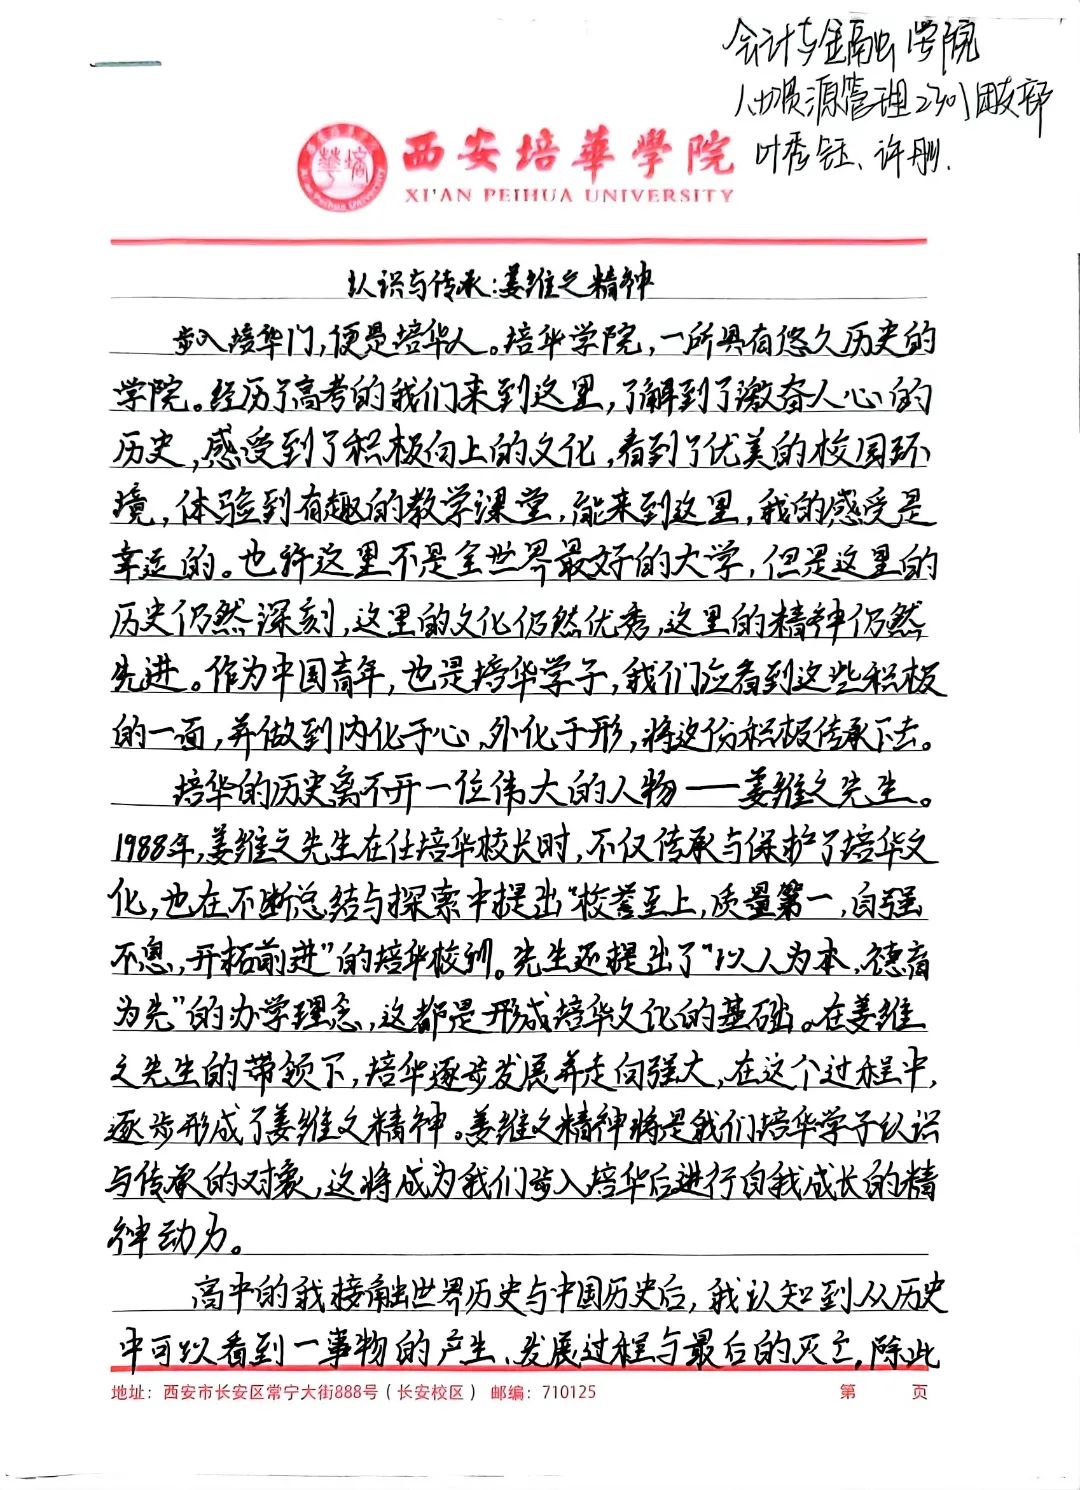 会计与金融学院
人力资源管理2301团支部
叶秀钰、许彤.
西安培華学院
XI'AN PEIHUA UNIVERSITY
认识与传承:姜维之精神
步入培华门,便是培华人。培华学院,一所具有悠久历史的
学院。经历了高考的我们来到这里,了解到了激奋人心的
历史,感受到了积极向上的文化,看到了优美的校园环
境,体验到有趣的教学课堂,能来到这里,我的感受是
幸运的。也许这里不是全世界最好的大学,但是这里的
历史仍然深刻,这里的文化仍然优秀,这里的精神仍然
先进。作为中国青年,也是培华学子,我们应看到这些积极
的一面,并做到内化于心、外化于形,将这份积极传承下去。
培华的历史离不开一位伟大的人物——姜维之先生。
1988年,姜维之先生在任培华校长时,不仅传承与保护了培华文
化,也在不断总结与探索中提出“校誉至上,质量第一,自强
不息,开拓前进”的培华校训。先生还提出了“以人为本、德育
为先”的办学理念,这都是形成培华文化的基础。在姜维
之先生的带领下,培华逐步发展并走向强大,在这个过程中,
逐步形成了姜维之精神。姜维之精神将是我们培华学子认识
与传承的对象,这将成为我们步入培华后进行自我成长的精
神动力。
高中的我接触世界历史与中国历史后,我认知到从历史
中可以看到一事物的产生、发展过程与最后的灭亡,除此
地址：西安市长安区常宁大街888号（长安校区） 邮编：710125 第 页